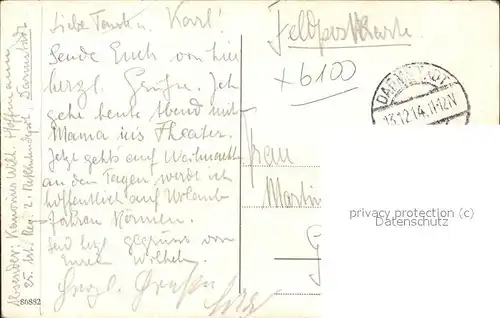 Absender: Kanonier Wilh. Hoffmann
25. Art. Reg. 2. Rekrutendepot, Darmstadt
Liebe Tante u. Karl!
Sende Euch von hier
herzl. Grüße. Ich
gehe heute Abend mit
Mama ins Theater.
Jetzt gehts auf Weihnacht
an den Tagen, werde ich
hoffentlich auf Urlaub
fahren können.
Seid herzl. gegrüsst von
Eurem Wilhelm.
Herzl.
80882
Feldpostkarte
x6100
DARMSTADT
13.12.14.11-12N
Frau
Martin
privacy protection
Datenschutz